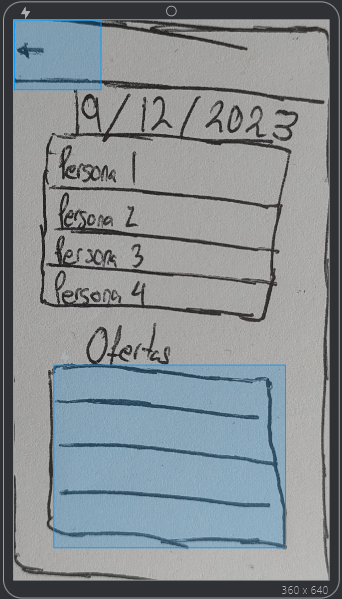 19/12/2023
Persona 1
Persona 2
Persona 3
Persona 4
Ofertas
360 x 640